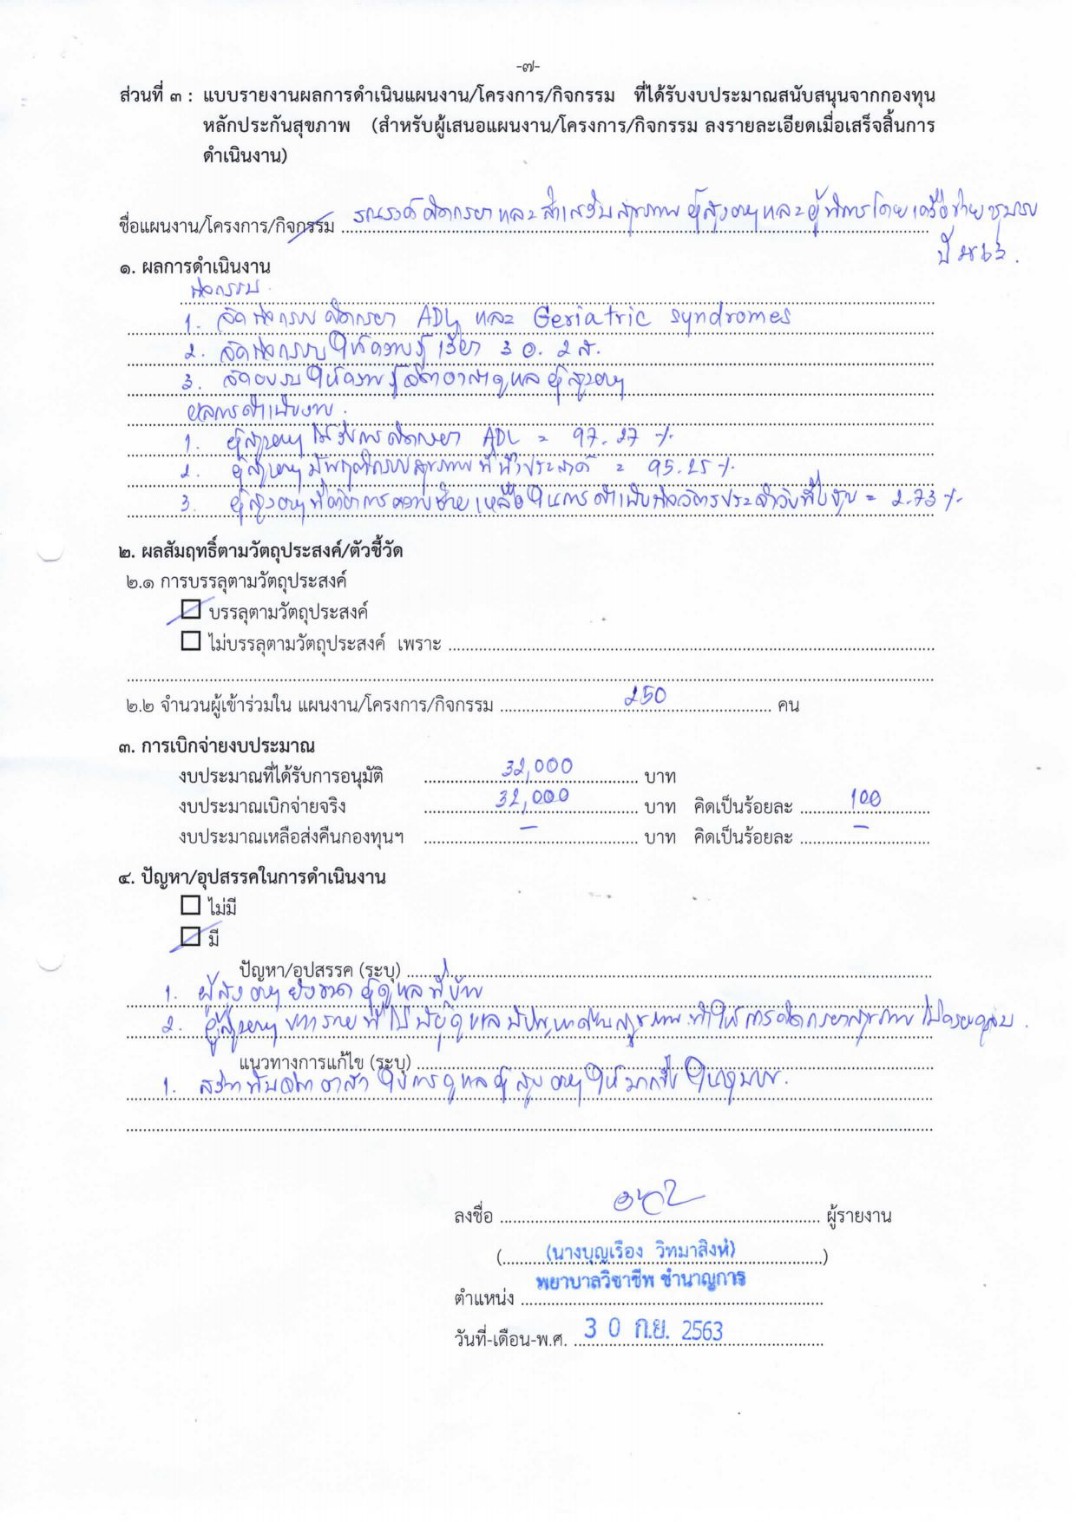 -๗-
ส่วนที่ ๓ : แบบรายงานผลการดำเนินแผนงาน/โครงการ/กิจกรรม ที่ได้รับงบประมาณสนับสนุนจากกองทุน
หลักประกันสุขภาพ (สำหรับผู้เสนอแผนงาน/โครงการ/กิจกรรม ลงรายละเอียดเมื่อเสร็จสิ้นการ
ดำเนินงาน)
ชื่อแผนงาน/โครงการ/กิจกรรม รณรงค์คัดกรองและส่งเสริมสุขภาพ ผู้สูงอายุและผู้พิการโดยเครือข่ายชุมชน
ปี ๒๕๖๓.
๑. ผลการดำเนินงาน
กิจกรรม
1. จัดกิจกรรมคัดกรอง ADL และ Geriatric syndromes
2. จัดกิจกรรมให้ความรู้ เรื่อง 3 อ. 2 ส.
3. จัดอบรมให้ความรู้จิตอาสาดูแลผู้สูงอายุ
ผลการดำเนินงาน.
1. ผู้สูงอายุ ได้รับการคัดกรอง ADL = 97.27 %
2. ผู้สูงอายุ มีพฤติกรรมสุขภาพที่พึงประสงค์ = 95.25 %
3. ผู้สูงอายุที่ต้องการความช่วยเหลือในการดำเนินกิจวัตรประจำวันพื้นฐาน = 2.73 %
๒. ผลสัมฤทธิ์ตามวัตถุประสงค์/ตัวชี้วัด
๒.๑ การบรรลุตามวัตถุประสงค์
บรรลุตามวัตถุประสงค์
ไม่บรรลุตามวัตถุประสงค์ เพราะ
๒.๒ จำนวนผู้เข้าร่วมใน แผนงาน/โครงการ/กิจกรรม 250 คน
๓. การเบิกจ่ายงบประมาณ
งบประมาณที่ได้รับการอนุมัติ 32,000 บาท
งบประมาณเบิกจ่ายจริง 32,000 บาท คิดเป็นร้อยละ 100
งบประมาณเหลือส่งคืนกองทุนฯ - บาท คิดเป็นร้อยละ -
๔. ปัญหา/อุปสรรคในการดำเนินงาน
ไม่มี
มี
ปัญหา/อุปสรรค (ระบุ)
1. ผู้สูงอายุ ยังขาดผู้ดูแลที่บ้าน
2. ผู้สูงอายุ บางรายที่ไม่มีผู้ดูแล มีปัญหาด้านสุขภาพ ทำให้การคัดกรองสุขภาพ ไม่ครอบคลุม.
แนวทางการแก้ไข (ระบุ)
1. สร้างทีมจิตอาสา ในการดูแลผู้สูงอายุ ให้มากขึ้น ในชุมชน.
ลงชื่อ ผู้รายงาน
(นางบุญเรือง วิทมาสิงห์)
พยาบาลวิชาชีพ ชำนาญการ
ตำแหน่ง
วันที่-เดือน-พ.ศ. 30 ก.ย. 2563